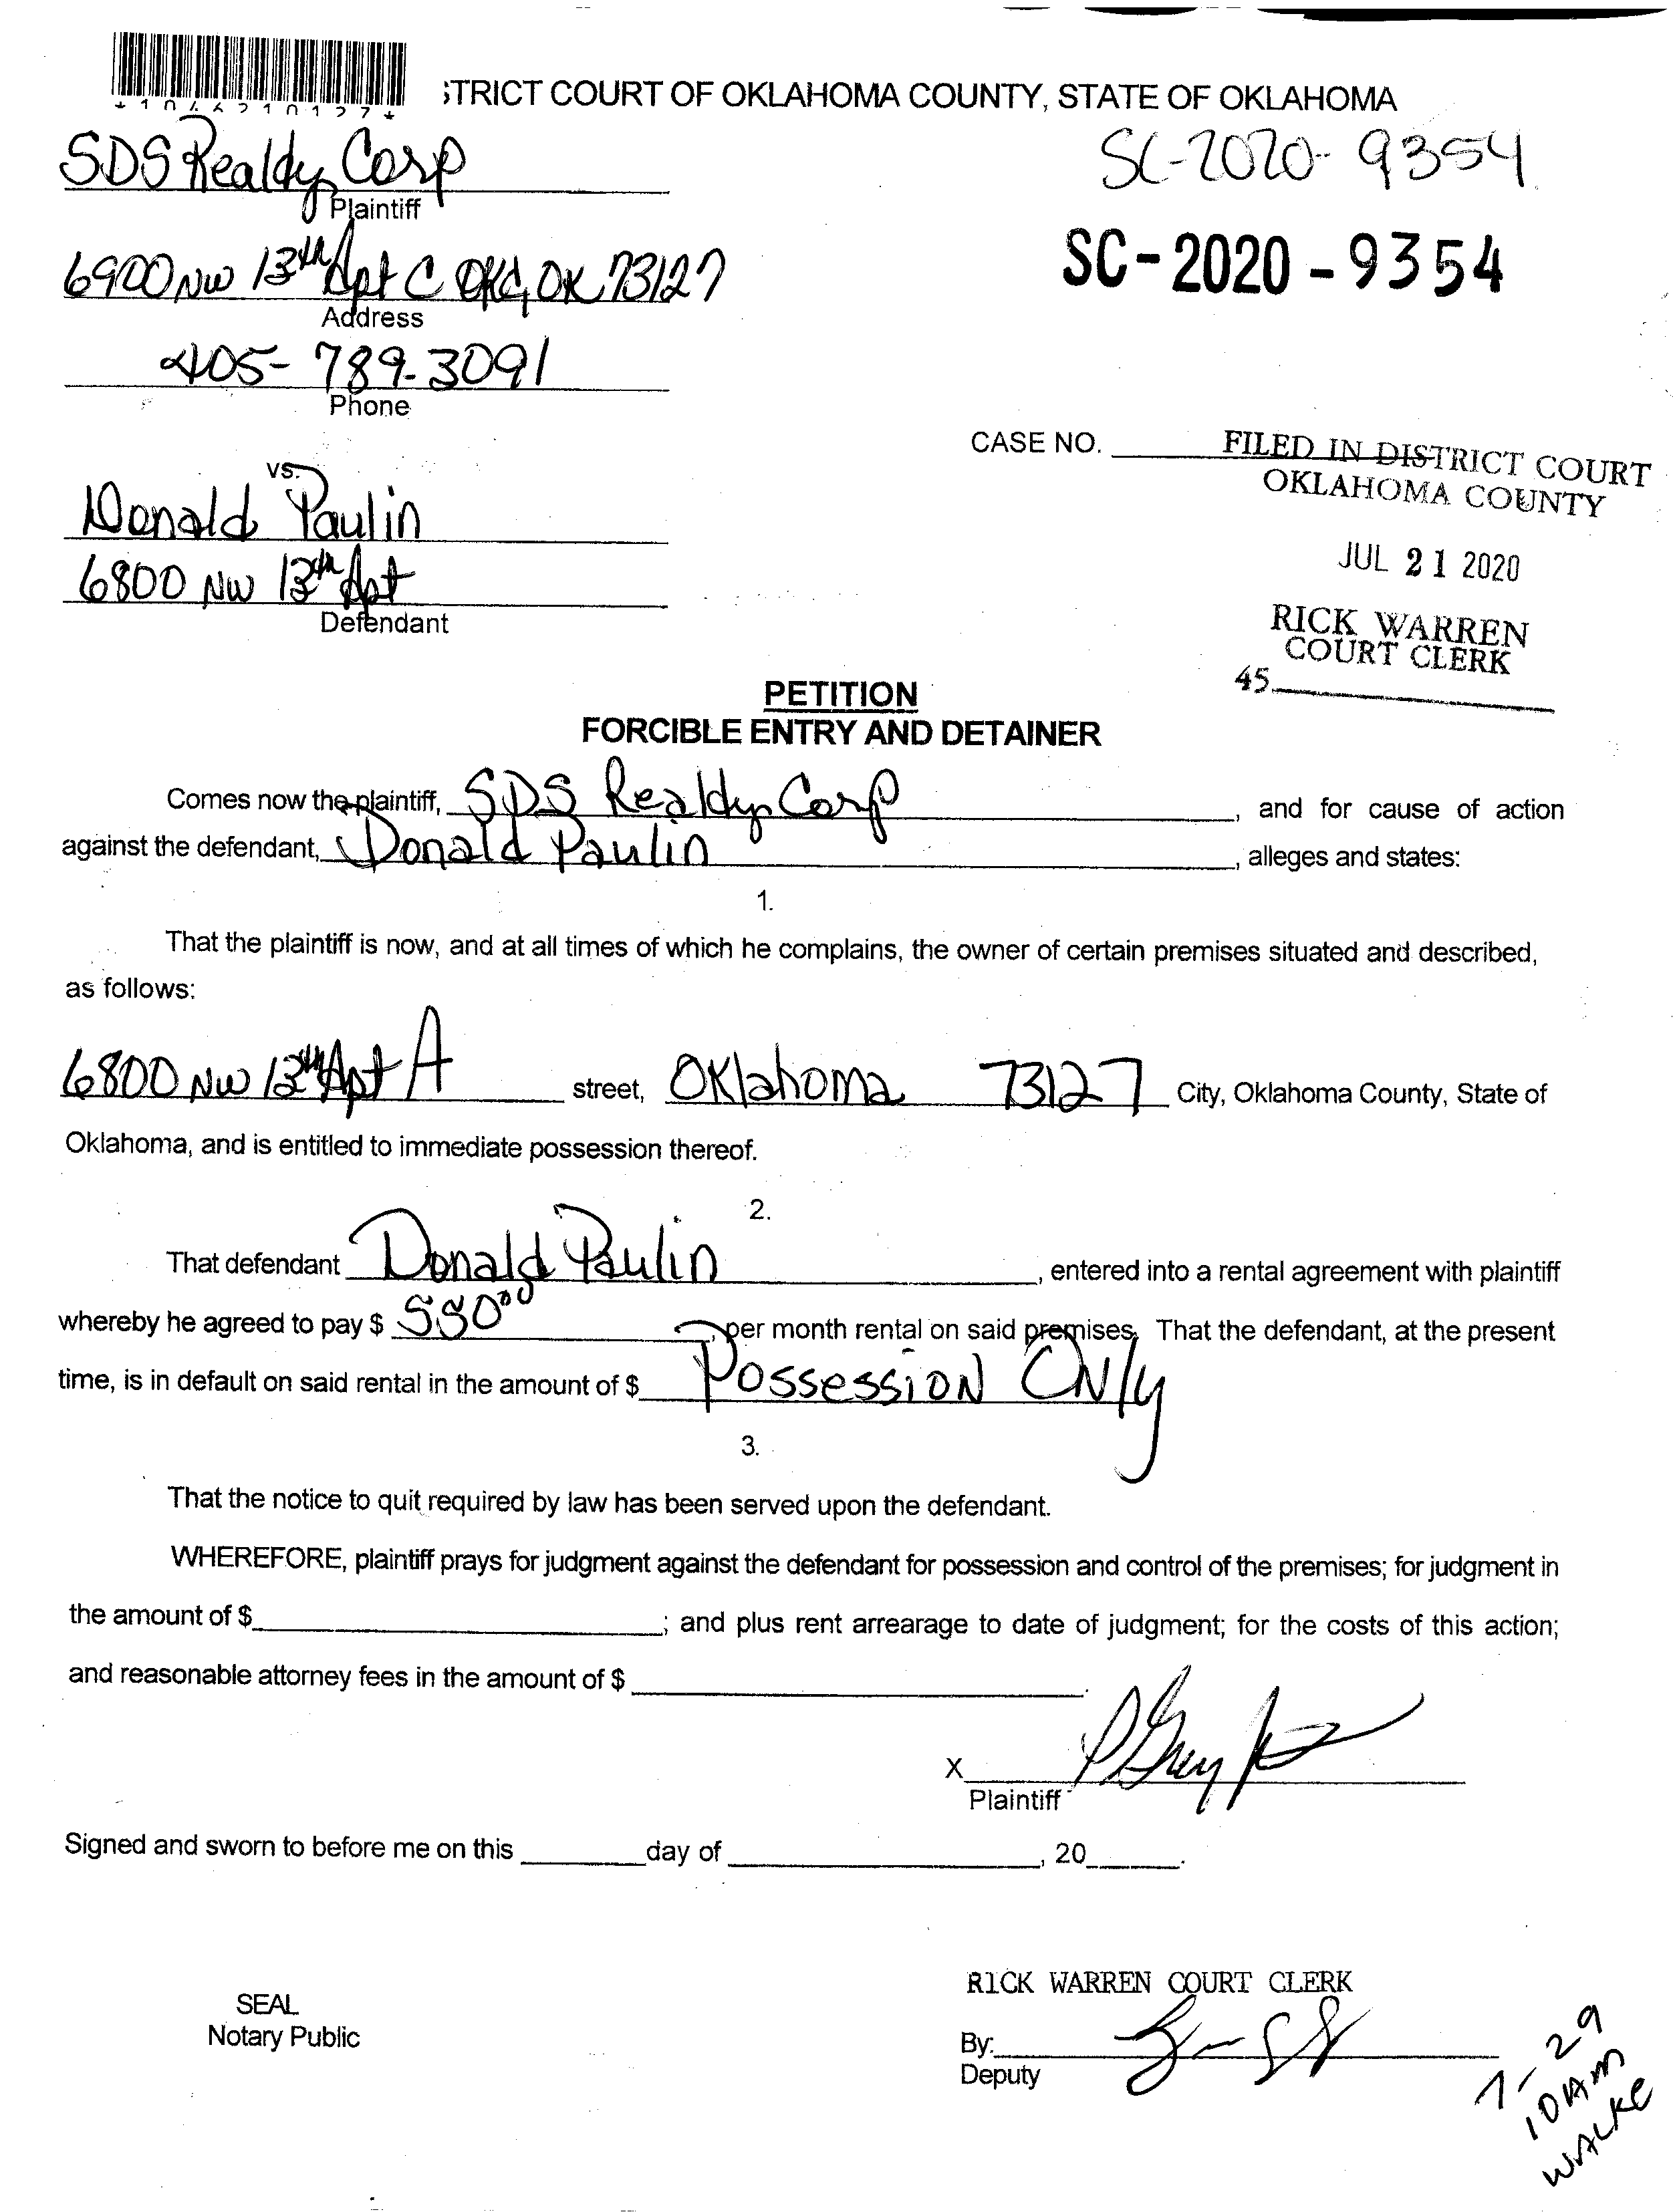 *1046210127*
STRICT COURT OF OKLAHOMA COUNTY, STATE OF OKLAHOMA
SDS Realdy Corp
Plaintiff
SC-2020-9354
6900 NW 13th Apt C OKC, OK 73127
Address
SC-2020-9354
405-789-3091
Phone
CASE NO.
FILED IN DISTRICT COURT
OKLAHOMA COUNTY
vs.
Donald Paulin
6800 NW 13th Apt
Defendant
JUL 21 2020
RICK WARREN
COURT CLERK
45
PETITION
FORCIBLE ENTRY AND DETAINER
Comes now the plaintiff, SDS Realdy Corp, and for cause of action
against the defendant, Donald Paulin, alleges and states:
1.
That the plaintiff is now, and at all times of which he complains, the owner of certain premises situated and described,
as follows:
6800 NW 13th Apt A street, Oklahoma 73127 City, Oklahoma County, State of
Oklahoma, and is entitled to immediate possession thereof.
2.
That defendant Donald Paulin, entered into a rental agreement with plaintiff
whereby he agreed to pay $ 550.00, per month rental on said premises. That the defendant, at the present
time, is in default on said rental in the amount of $ Possession Only
3.
That the notice to quit required by law has been served upon the defendant.
WHEREFORE, plaintiff prays for judgment against the defendant for possession and control of the premises; for judgment in
the amount of $ ; and plus rent arrearage to date of judgment; for the costs of this action;
and reasonable attorney fees in the amount of $ .
X
Plaintiff
Signed and sworn to before me on this day of , 20 .
RICK WARREN COURT CLERK
SEAL
Notary Public
By:
Deputy
7-29
10 AM
WALKE